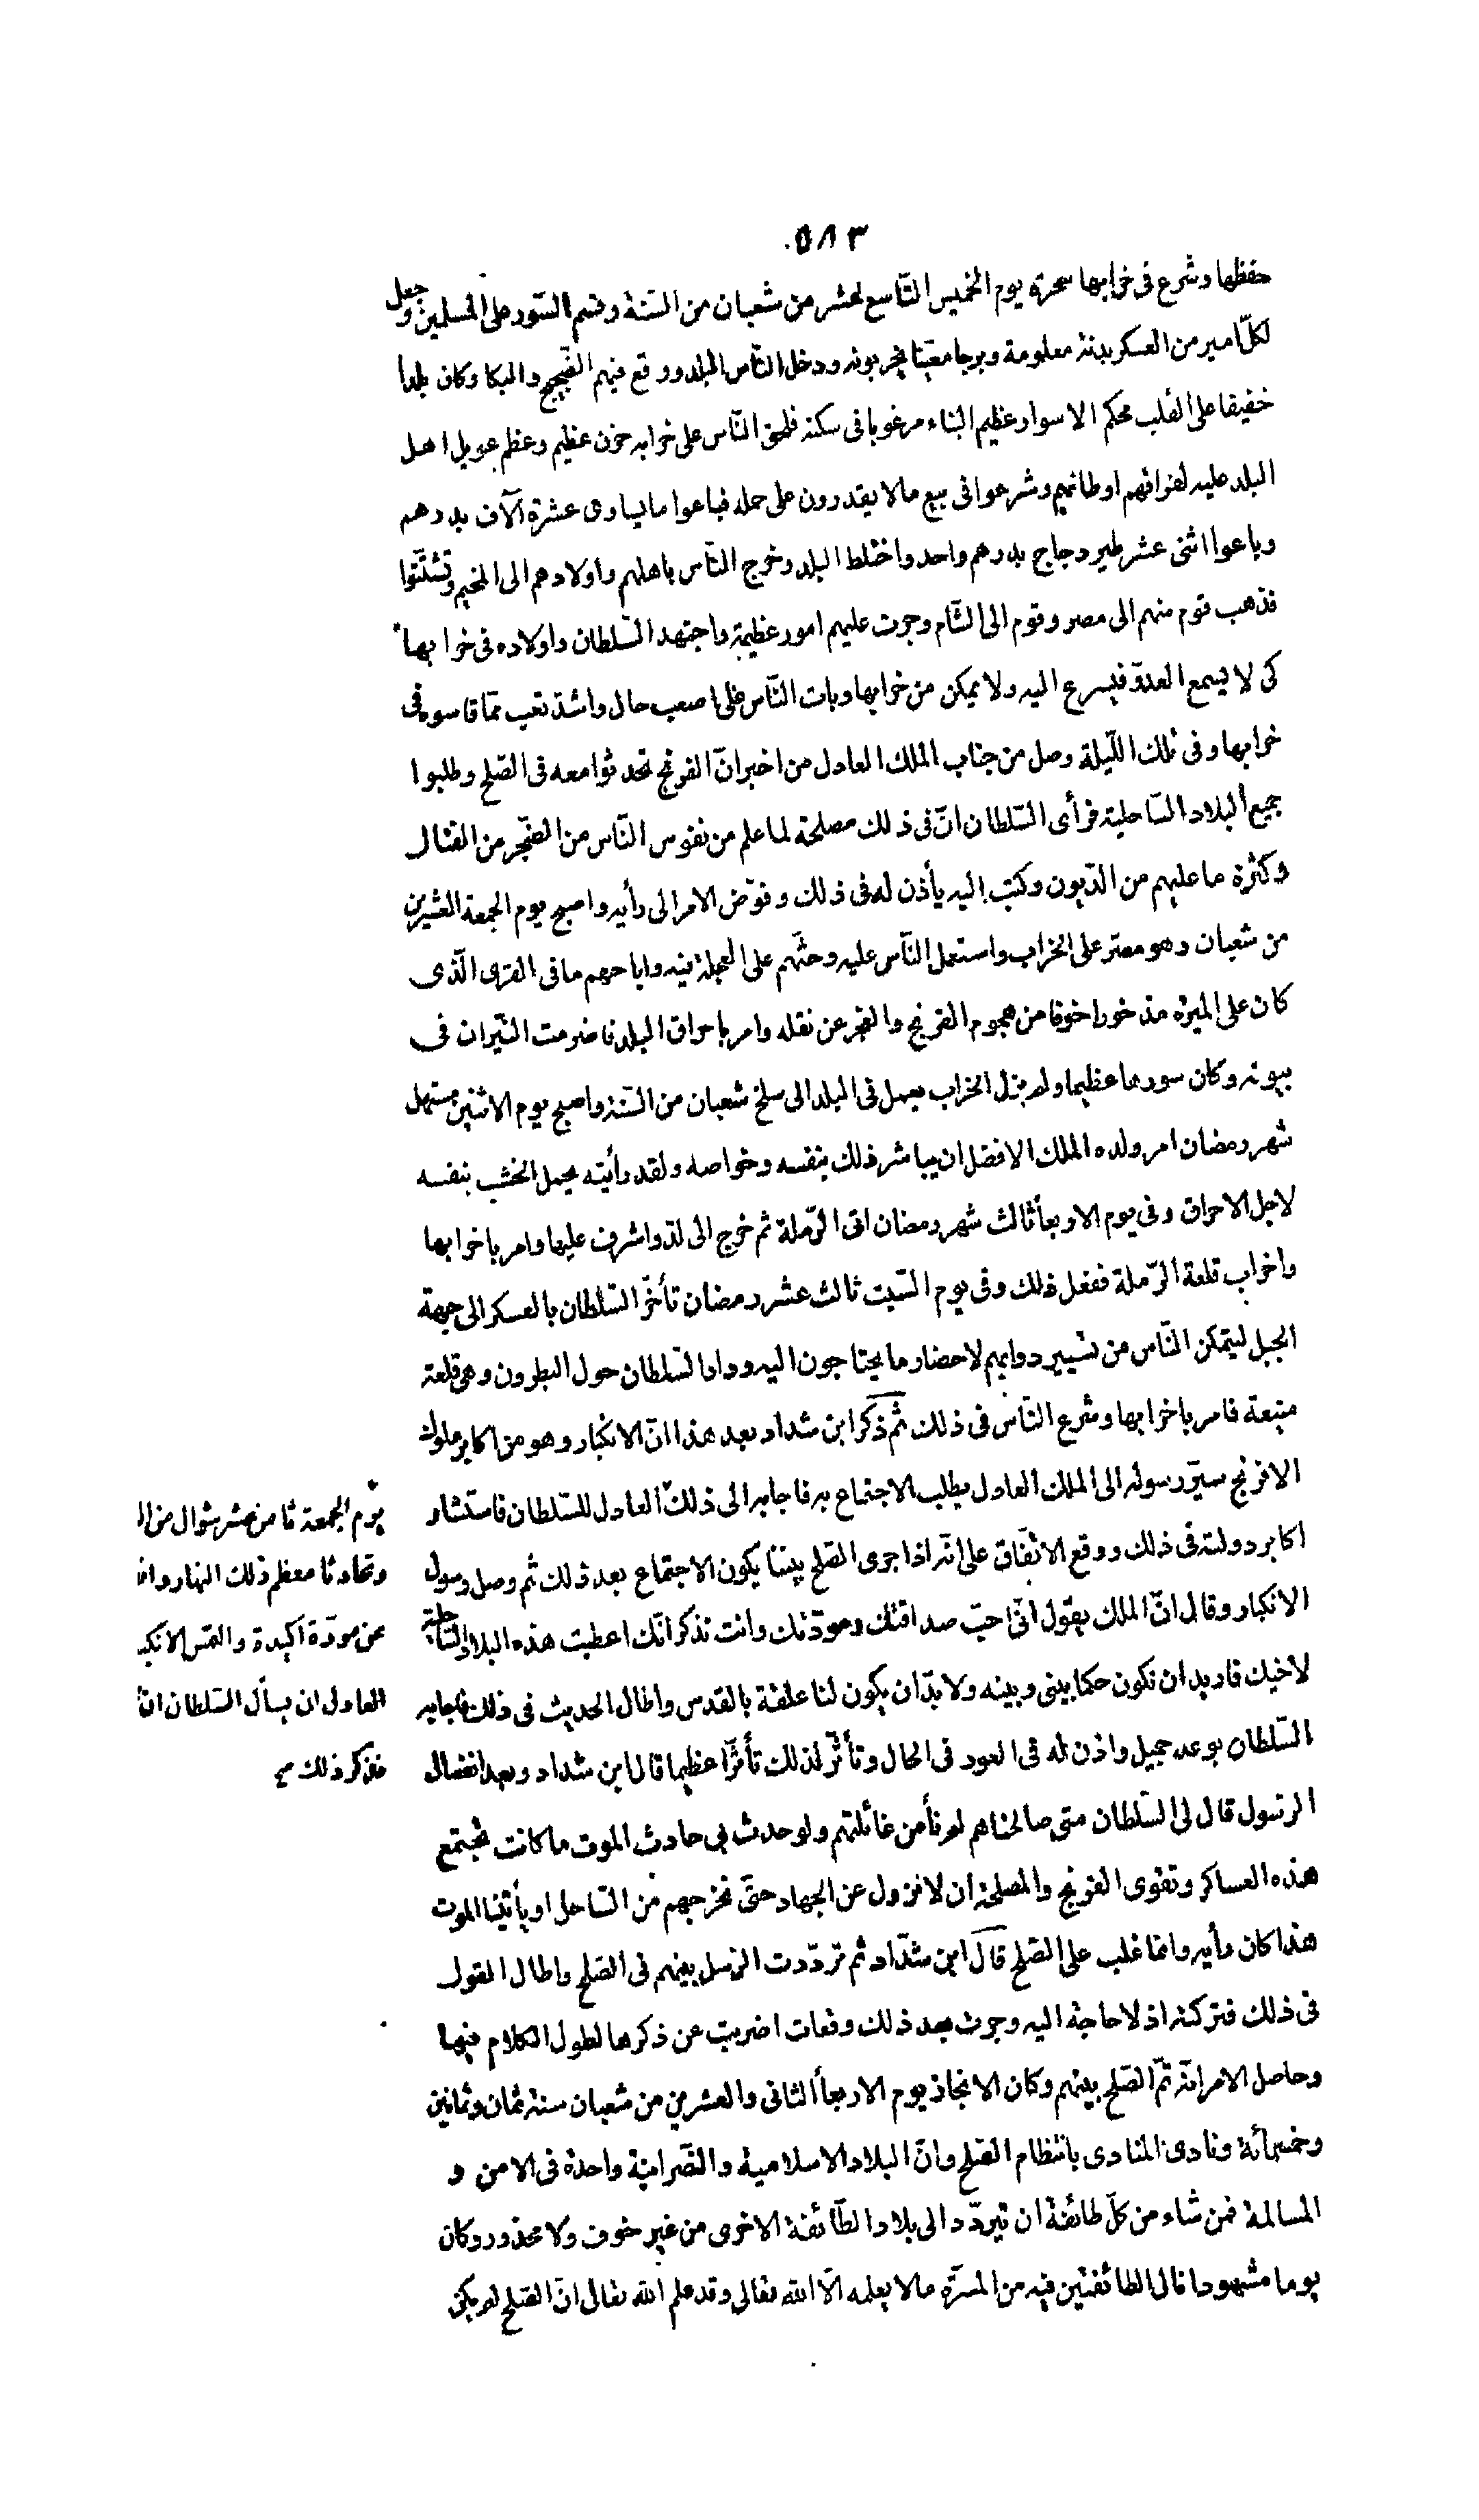 ٥٨٣.
حفظها وشرع فى خرابها سحرة يوم الخميس التّاسع لعشر من شعبان من السّنة وقسم السّور على المسلمين وجعل
لكلّ امير من العسكر بدنة معلومة وبرجا معيّنا يخربونه ودخل النّاس البلد ووقع فيهم الضّجيج والبكا وكان بلدا
خفيفا على القلب محكم الاسوار عظيم البناء مرغوبا فى سكنه فلحق النّاس على خرابه حزن عظيم وعظم عويل اهل
البلد عليه لفراقهم اوطانهم وشرعوا فى بيع مالا يقدرون على حمله فباعوا ما يساوى عشرة آلاف بدرهم
وباعوا اثنى عشر طير دجاج بدرهم واحد واختلط البلد وخرج النّاس باهلهم واولادهم الى المخيم وتشتّتوا
فذهب قوم منهم الى مصر وقوم الى الشّام وجرت عليهم امور عظيمة واجتهد السّلطان واولاده فى خرابها
كى لا يسمع العدوّ فيسرع اليه ولا يمكن من خرابها وبات النّاس على اصعب حال واشدّ تعب ممّا قاسوه فى
خرابها وفى تلك اللّيلة وصل من جناب الملك العادل من اخبر انّ الفرنج تحدثوا معه فى الصّلح وطلبوا
جميع البلاد السّاحلية فرأى السّلطان انّ فى ذلك مصلحة لما علم من نفوس النّاس من الضّجر من القتال
وكثرة ما عليهم من الدّيون وكتب اليه يأذن له فى ذلك وفوّض الامر الى رأيه واصبح يوم الجمعة العشرين
من شعبان وهو مصرّ على الخراب واستعمل النّاس عليه وحثّهم على العجلة فيه واباحهم ما فى الهرى الّذى
كان على الميرة مذخورا خوفا من هجوم الفرنج والعجز عن نقله وامر باحراق البلد فاضرمت النّيران فى
بيوته وكان سورها عظيما ولم يزل الخراب يعمل فى البلد الى سلخ شعبان من السّنة واصبح يوم الاثنين مستهل
شهر رمضان امر ولده الملك الافضل ان يباشر ذلك بنفسه وخواصه ولقد رأيته يحمل الخشب بنفسه
لاجل الاحراق وفى يوم الاربعأ ثالث شهر رمضان اتى الرّملة ثم خرج الى لدّ واشرف عليها وامر باخرابها
واخراب قلعة الرّملة ففعل ذلك وفى يوم السّبت ثالث عشر رمضان تأخّر السّلطان بالعسكر الى جهة
الجبل ليتمكن النّاس من تسيير دوابهم لاحضار ما يحتاجون اليه ودار السّلطان حول النطرون وهى قلعة
منيعة فامر باخرابها وشرع النّاس فى ذلك ثم ذكر ابن شداد بعد هذا انّ الانكبار وهو من اكابر ملوك
الافرنج سيّر رسوله الى الملك العادل يطلب الاجتماع به فاجابه الى ذلك العادل للسّلطان فاستشار
اكابر دولته فى ذلك ووقع الاتّفاق على انّه اذا جرى الصّلح بيننا يكون الاجتماع بعد ذلك ثم وصل رسول
الانكبار وقال انّ الملك يقول انّى احبّ صداقتك ومودّتك وانت تذكر انّك اعطيت هذه البلاد السّاحلية
لاخيك فاريد ان تكون حكما بينى وبينه ولا بدّ ان يكون لنا علقة بالقدس واطال الحديث فى ذلك فاجابه
السّلطان بوعد جميل واذن له فى العود فى الحال وتأثّر لذلك تأثّرا عظيما قال ابن شداد وبعد انفصال
الرسول قال لى السّلطان متى صالحناهم لم نأمن غائلتهم ولو حدث بى حادث الموت ما كانت تجتمع
هذه العساكر وتقوى الفرنج والمصلحة ان لا نزول عن الجهاد حتّى نخرجهم من السّاحل او يأتينا الموت
هذا كان رأيه وانما غلب على الصّلح قال ابن شدّاد ثم تردّدت الرّسل بينهم فى الصّلح واطال القول
فى ذلك فتركته اذ لا حاجة اليه وجرت بعد ذلك وقعات اضربت عن ذكرها لطول الكلام فيها
وحاصل الامر انّه تمّ الصّلح بينهم وكان الانجاز يوم الاربعأ الثانى والعشرين من شعبان سنة ثمان وثمانين
وخمسمائة ونادى المنادى بانتظام الصّلح وانّ البلاد الاسلامية والنّصرانيّة واحدة فى الامن و
المسالمة فمن شاء من كلّ طائفة ان يتردّد الى بلاد الطّائفة الاخرى من غير خوف ولا محذور وكان
يوما مشهودا نال الطائفتين فيه من المسرّة ما لا يعلمه الّا الله تعالى وقد علم الله تعالى انّ الصّلح لم يكن
يوم الجمعة ثامن عشر شوال من ال
وتحادثا معظم ذلك النهار وانـ
عن مودّة اكيدة والتمس الانكبـ
العادل ان يسأل السّلطان انّ
فذكر ذلك صح